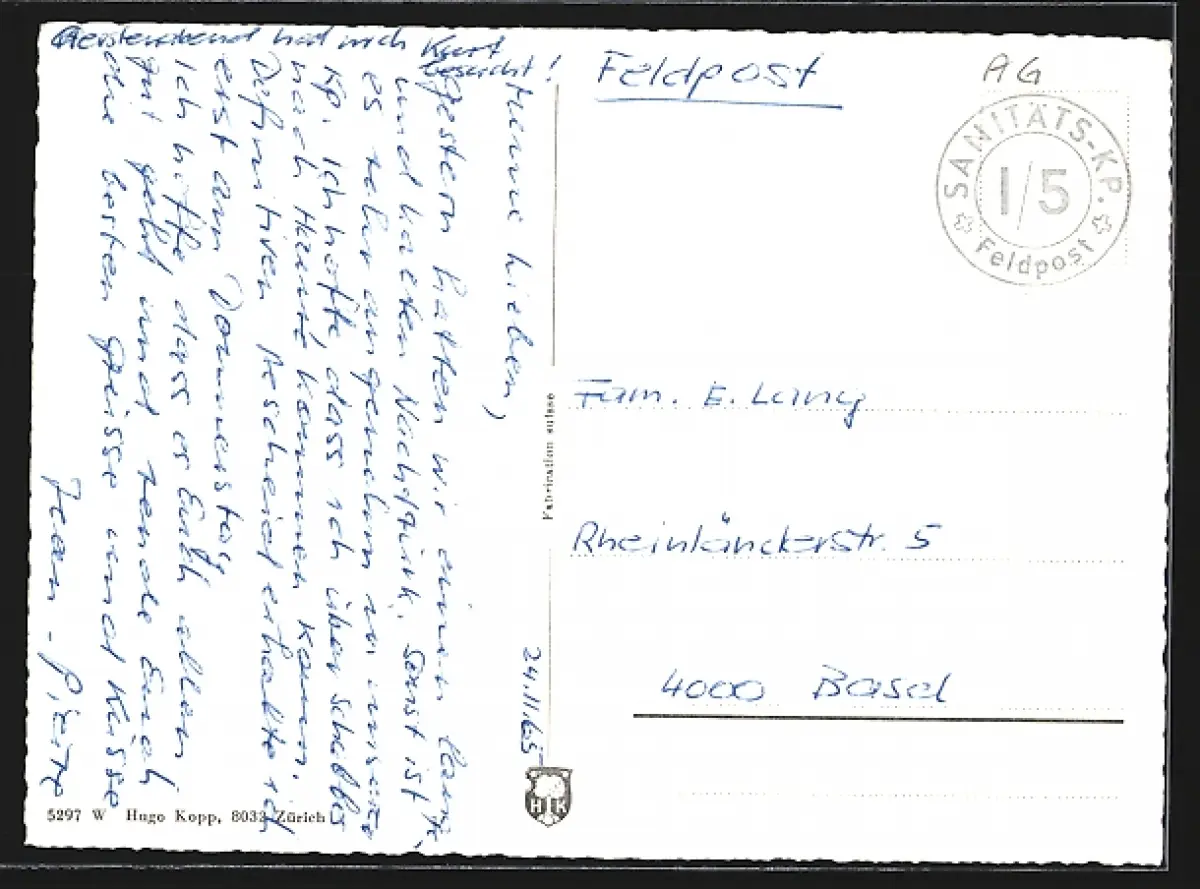 Gesternabend hat mich Kurt
besucht!
24.11.65
Meine Lieben,
gestern hatten wir einen
und kalten Nachtpikk. Sonst ist
es sehr angenehm in unsere
Kp. Ich hoffe, dass ich über
nach Hause kommen kann.
Definitiven Bescheid erhalte ich
erst am Donnerstag
Ich hoffe dass es Euch allen
gut geht und sende Euch
die besten Grüsse und Küsse
Jean-Pierre
Feldpost
AG
SANITÄTS-KP.
I/5
Feldpost
Fam. E. Lang
Rheinländerstr. 5
4000 Basel
Fabrication suisse
HK
5297 W Hugo Kopp, 8032 Zürich